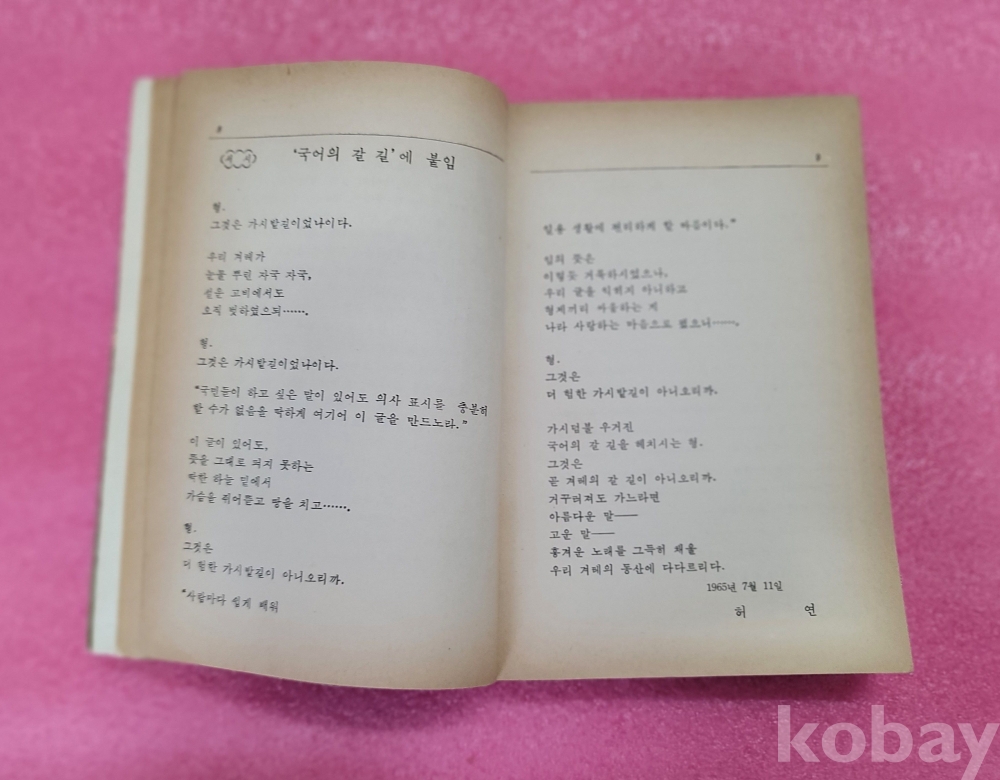 8
서 시
'국어의 갈 길'에 붙임
형.
그것은 가시밭길이었나이다.
우리 겨레가
눈물 뿌린 자국 자국,
설운 고비에서도
오직 빗하였으되…….
형.
그것은 가시밭길이었나이다.
"국민들이 하고 싶은 말이 있어도 의사 표시를 충분히
할 수가 없음을 딱하게 여기어 이 글을 만드노라."
이 글이 있어도,
뜻을 그대로 펴지 못하는
딱한 하늘 밑에서
가슴을 쥐어뜯고 땅을 치고…….
형.
그것은
더 험한 가시밭길이 아니오리까.
"사람마다 쉽게 배워
9
일용 생활에 편리하게 할 따름이다."
임의 뜻은
이렇듯 거룩하시었으나,
우리 글을 익히지 아니하고
형제끼리 아옹하는 게
나라 사랑하는 마음으로 됐으니…….
형.
그것은
더 험한 가시밭길이 아니오리까.
가시덤불 우거진
국어의 갈 길을 헤치시는 형.
그것은
곧 겨레의 갈 길이 아니오리까.
거꾸러져도 가느라면
아름다운 말——
고운 말——
흥겨운 노래를 그득히 채울
우리 겨레의 동산에 다다르리다.
1965년 7월 11일
허 연
kobay